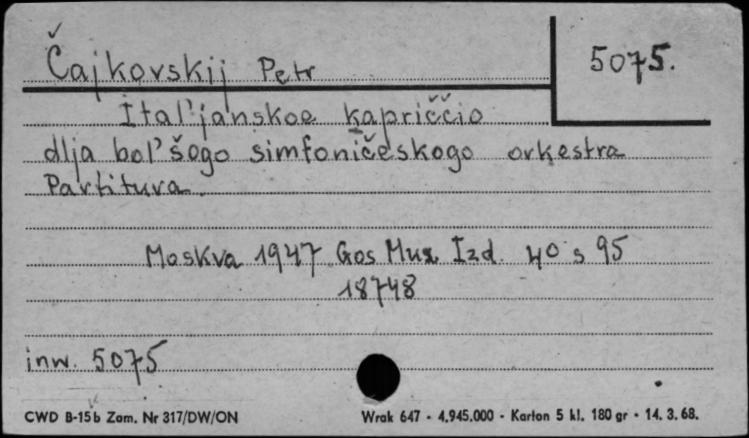 Čajkovskij Petr
5075.
Ital'janskoe kapriččio
dlja bol'šogo simfoničeskogo orkestra
Partitura.
Moskva 1947 Gos Muz Izd. 40 s 95
18748
inw. 5075
CWD B-15b Zam. Nr 317/DW/ON
Wrak 647 - 4.945.000 - Karton 5 kl. 180 gr - 14. 3. 68.